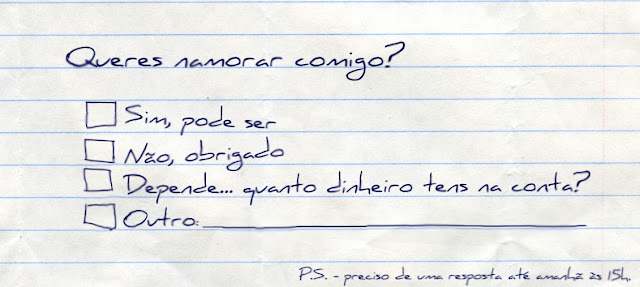 Queres namorar comigo?
Sim, pode ser
Não, obrigado
Depende... quanto dinheiro tens na conta?
Outro: ____________________
P.S. - preciso de uma resposta até amanhã às 15h.